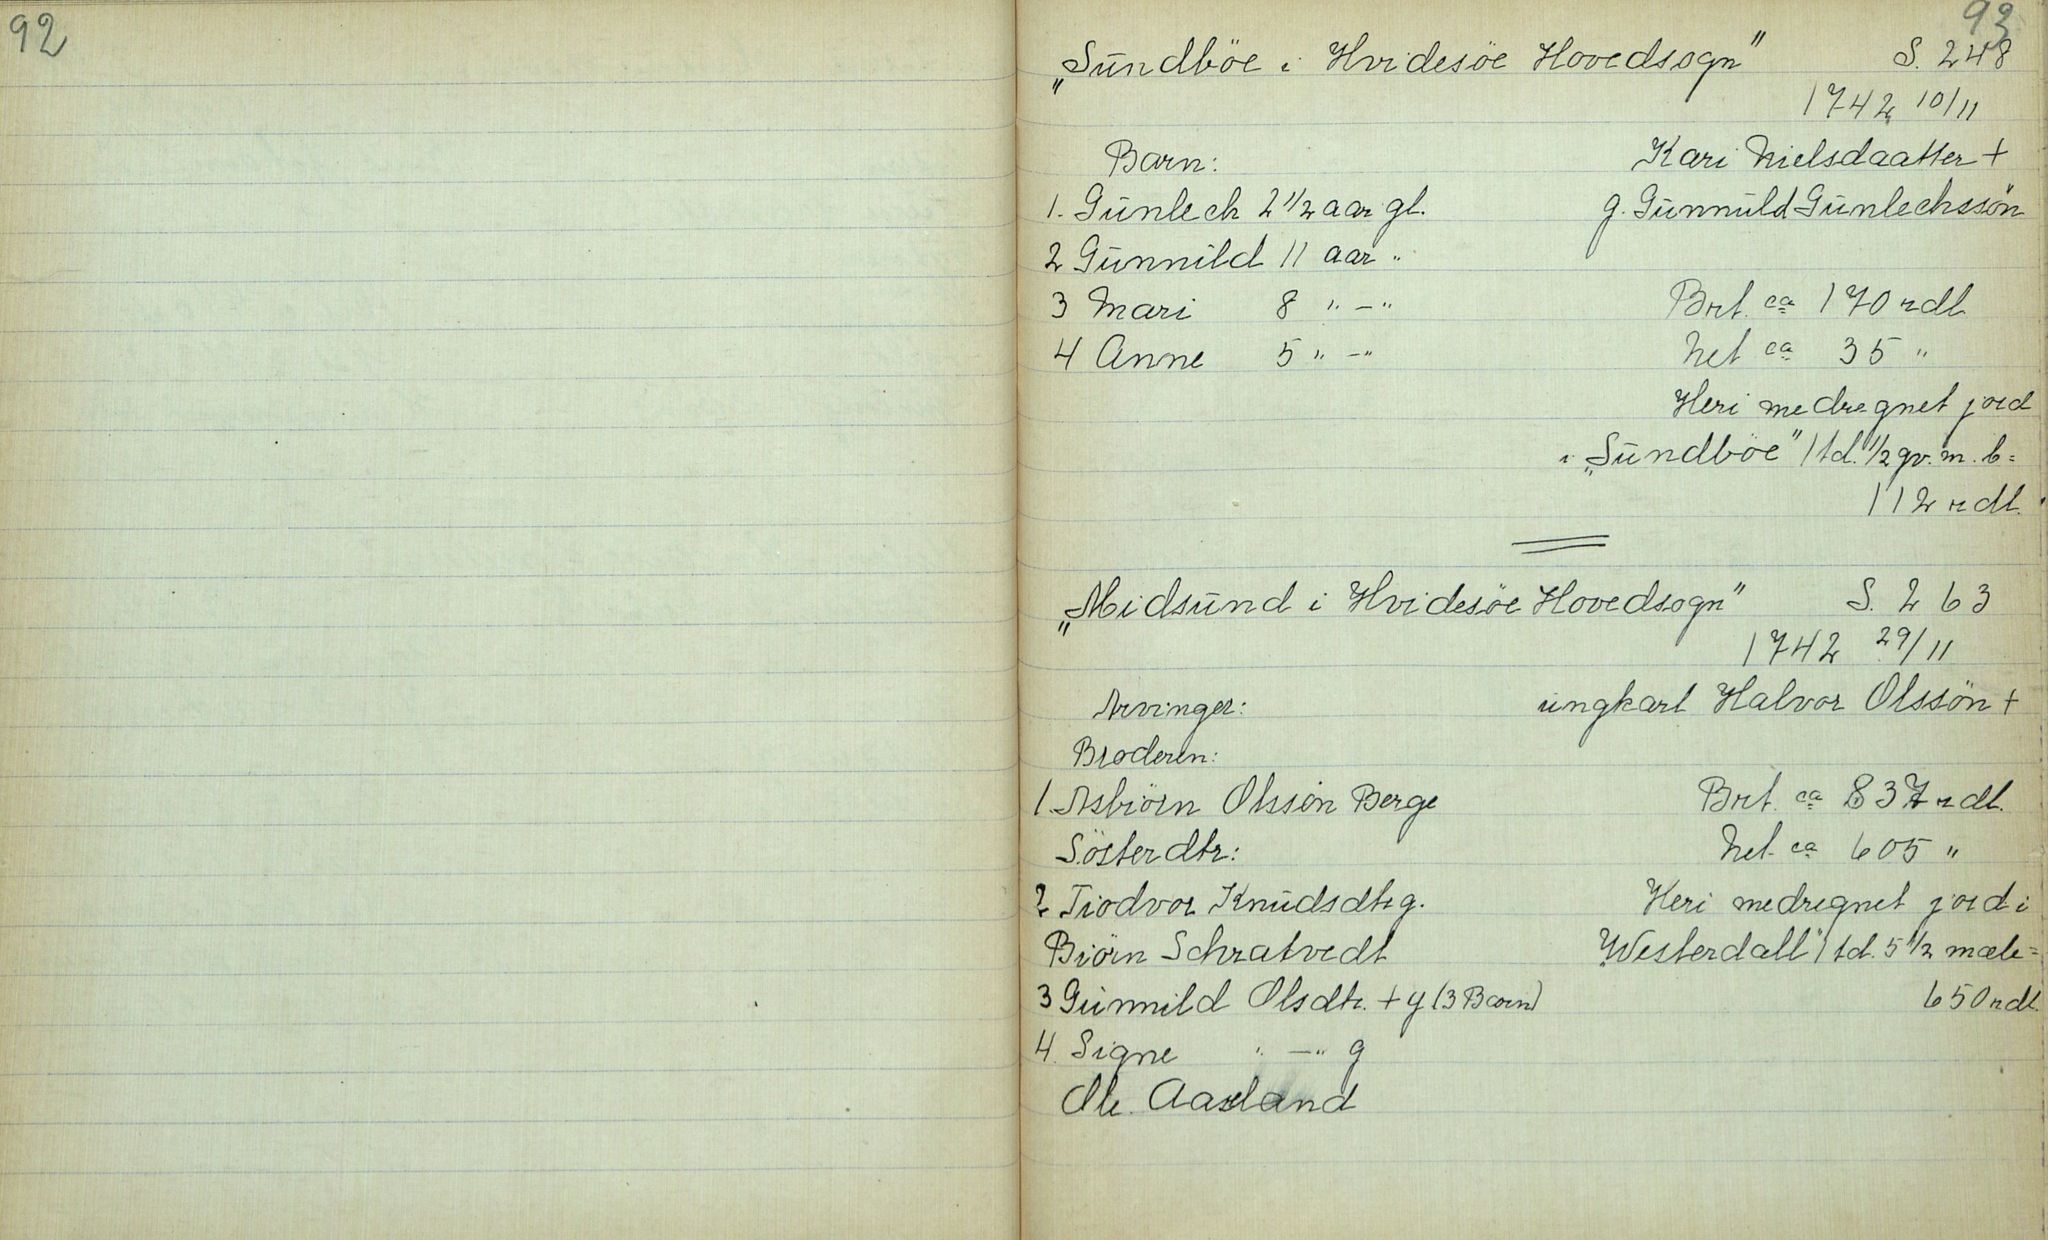 92
93
„Sündböe i Hvidesöe Hovedsogn" S. 248
1742 10/11
Barn: Kari Nielsdaatter +
1. Günlech 2 1/2 aar gl. g. Gunnuld Günlechssön
2 Günnild 11 aar "
3 Mari 8 " -" Brt. ca 170 rdl.
4 Anne 5 " -" Net ca 35 "
Heri medregnet jord
i „Sündböe" 1 td. 1/2 gv. m. b =
112 rdl.
„Midsünd i Hvidesöe Hovedsogn" S. 263
1742 29/11
Arvinger: üngkarl Halvor Olssön +
Broderen:
1. Asbiörn Olssön Berge Brt. ca 837 rdl.
Sösterdtr: Net ca 605 "
2 Tiodvor Knüdsdtr g. Heri medregnet jord i
Biörn Schratvedt „Westerdall" 1 td. 5 1/2 mæle =
3 Günnild Olsdtr. + g (3 Barn) 650 rdl.
4. Signe " -" g
Ole Aasland